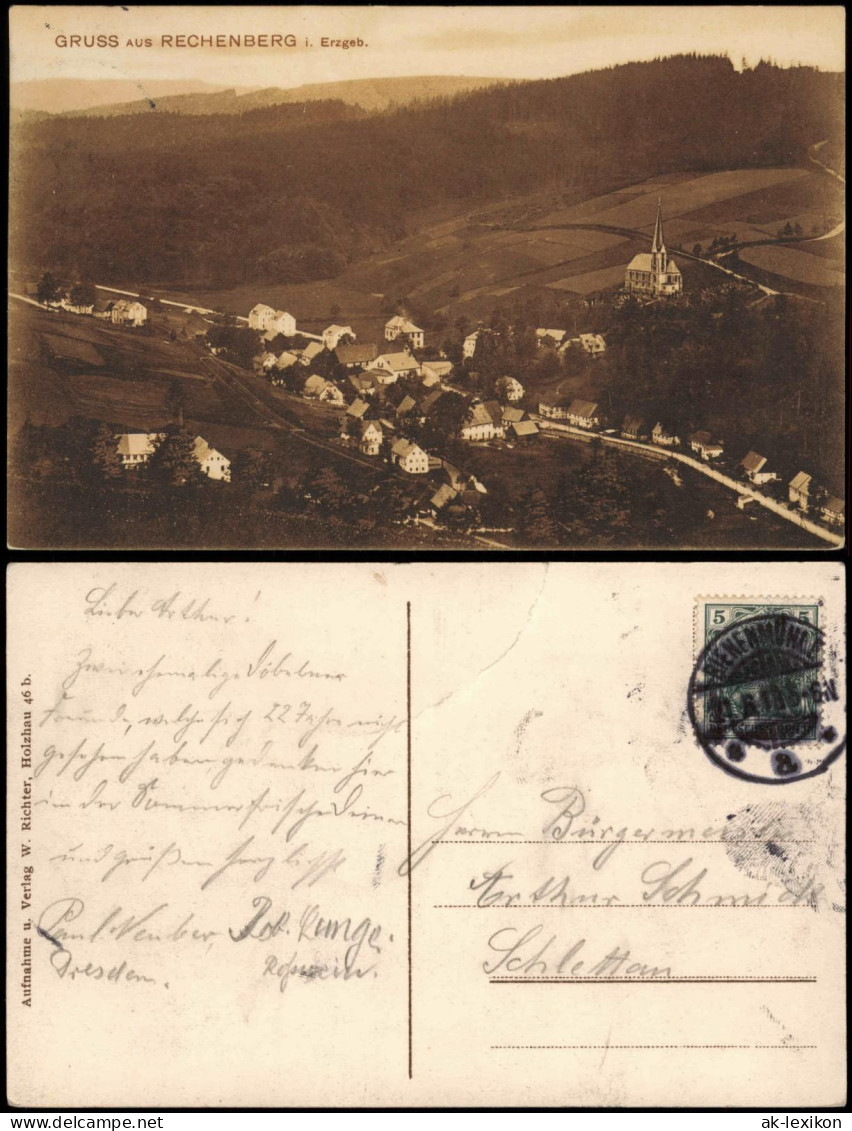 GRUSS AUS RECHENBERG i. Erzgeb.
Lieber Arthur!
Zwei ehemalige Döbelner
Freunde, welche sich 22 Jahre nicht
gesehen haben, gedenken hier
in der Sommerfrische Deiner
und grüßen herzlichst
Paul Neuber, Rob. Runge.
Dresden. Roßwein.
Aufnahme u. Verlag W. Richter, Holzhau 46 b.
5 5
Herrn Bürgermeister
Arthur Schmidt
Schlettau
ak-lexikon.com